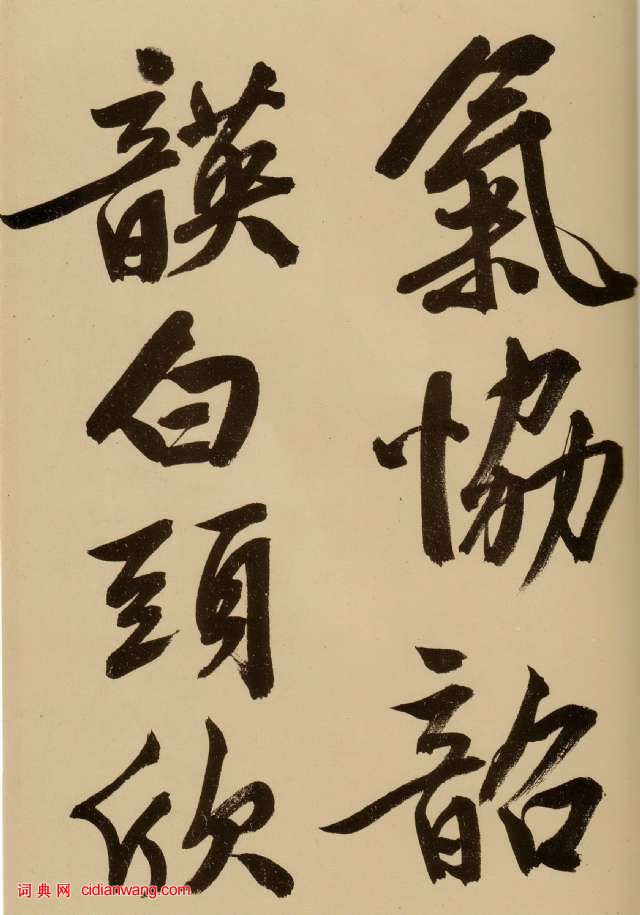 氣協韶
韺白頭欣
词典网 cidianwang.com